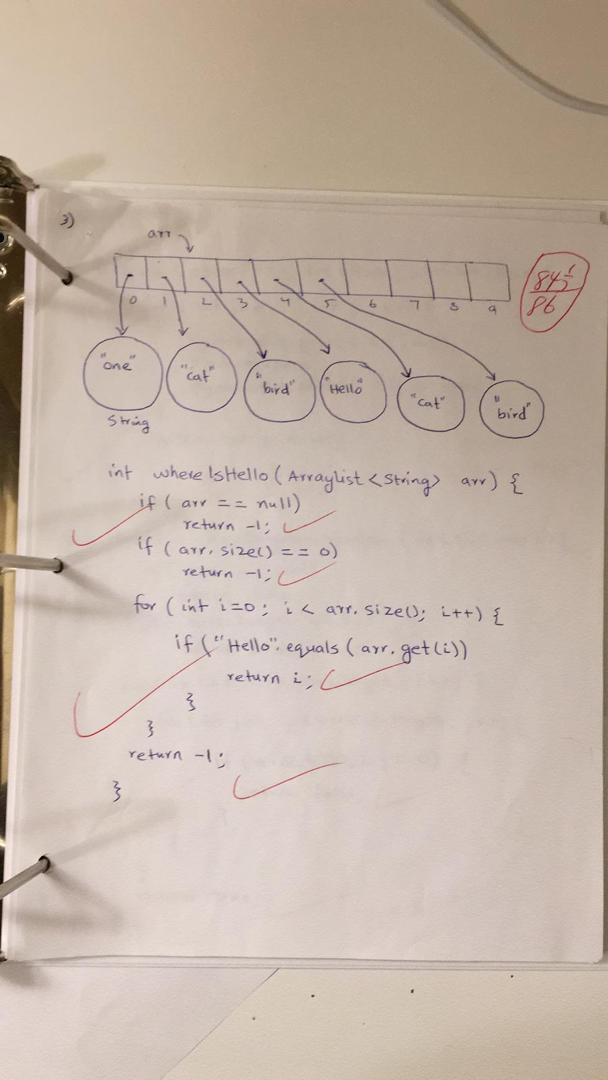 3)
arr
84½
86
0 1 2 3 4 5 6 7 8 9
"one" "cat" "bird" "Hello" "cat" "bird"
String
int whereIsHello (ArrayList <String> arr) {
if ( arr == null)
return -1;
if ( arr. size() == 0)
return -1;
for ( int i=0; i < arr. size(); i++) {
if ("Hello". equals ( arr. get(i))
return i;
}
}
return -1;
}